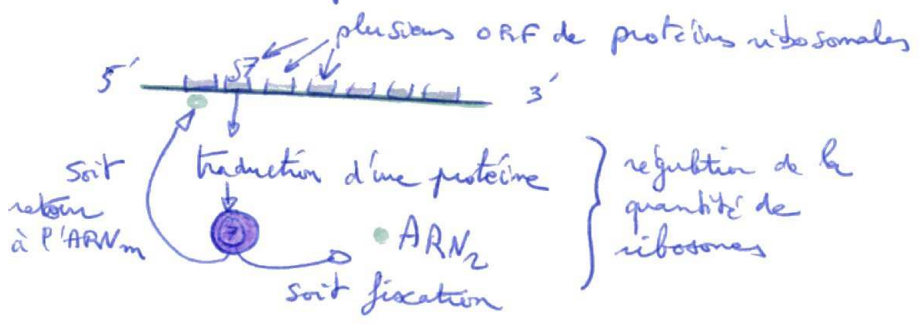 plusieurs ORF de protéines ribosomales
S7
5' 3'
soit retour à l'ARNm
traduction d'une protéine
7
ARN2
soit fixation
régulation de la quantité de ribosomes